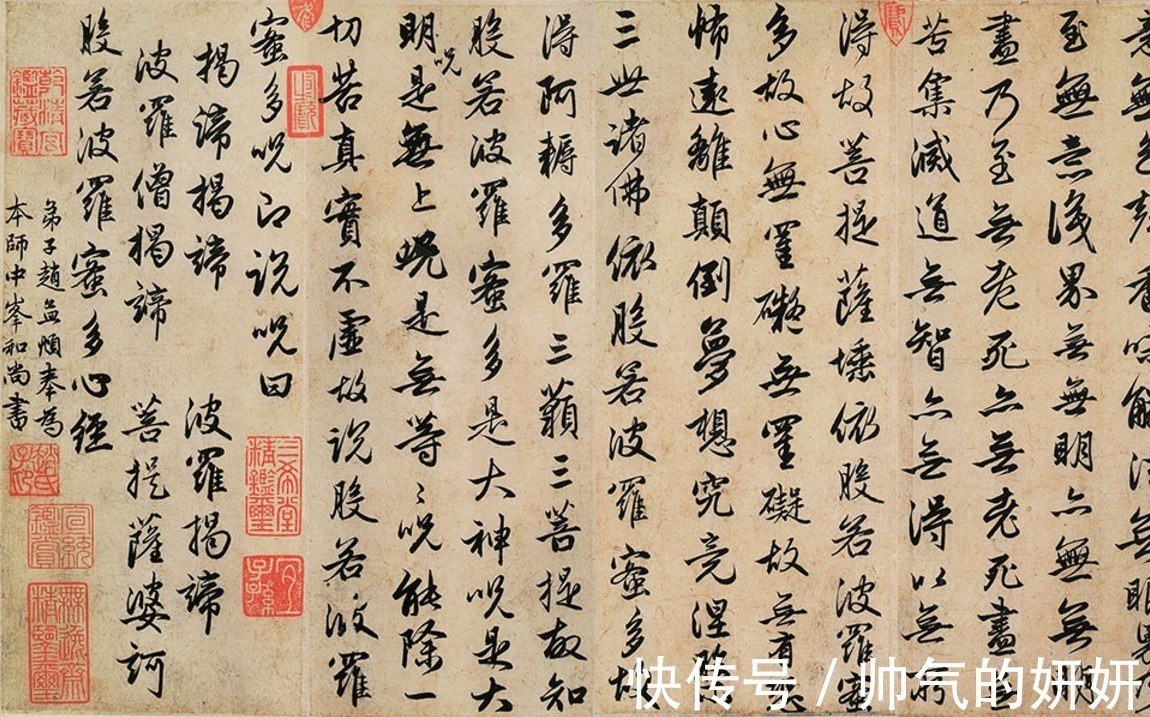 意無色聲香味觸法無眼界乃
至無意識界無無明亦無無明
盡乃至無老死亦無老死盡無
苦集滅道無智亦無得以無所
得故菩提薩埵依般若波羅蜜
多故心無罣礙無罣礙故無有恐
怖遠離顛倒夢想究竟涅槃
三世諸佛依般若波羅蜜多故
得阿耨多羅三藐三菩提故知
般若波羅蜜多是大神呪是大
明呪是無上呪是無等〻呪能除一
切苦真實不虛故說般若波羅
蜜多呪即說呪曰
揭諦揭諦 波羅揭諦
波羅僧揭諦 菩提薩婆訶
般若波羅蜜多心經
弟子趙孟頫奉為
本師中峯和尚書
三希堂精鑑璽
宜子孫
無逸齋精鑒璽
快传号 / 帅气的妍妍